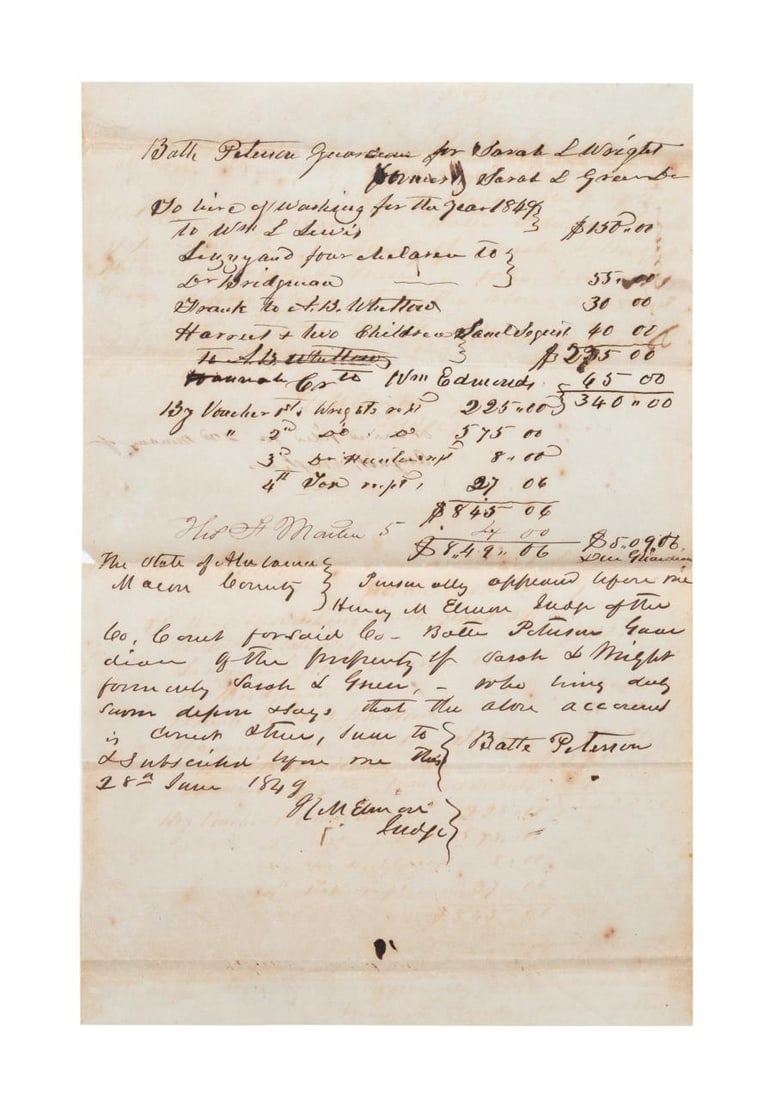 Batte Peterson Guardian for Sarah L Wright
formerly Sarah L Green Dr
To hire of Washing for the year 1849
to Wm L Lewis $150.00
and four children to
Dr Bridgman 55.00
Frank to A.B. Whetlow 30 00
Harriet & two Children Saml 40 00
to A.B. Whetlow $275 00
Hannah to Wm Edmonds 65 00
Cr 340.00
By Voucher 1st Wrights rept 225.00
" 2nd Do Do 575 00
3d Dr rept 8.00
4th Tax rept, 37 06
$845 06
Thos F Martin 5 4 00
$8,49.06 $5.09.06
Due Guardian
The State of Alabama
Macon County Personally appeared before me
Henry M Elmore Judge of the
Co, Court for said Co - Batte Peterson Guar
dian of the property of Sarah L Wright
formerly Sarah L Green, - who being duly
sworn depose & says that the above account
is correct & true, Sworn to
& subscribed before me this Batte Peterson
28th June 1849
H M Elmore
Judge